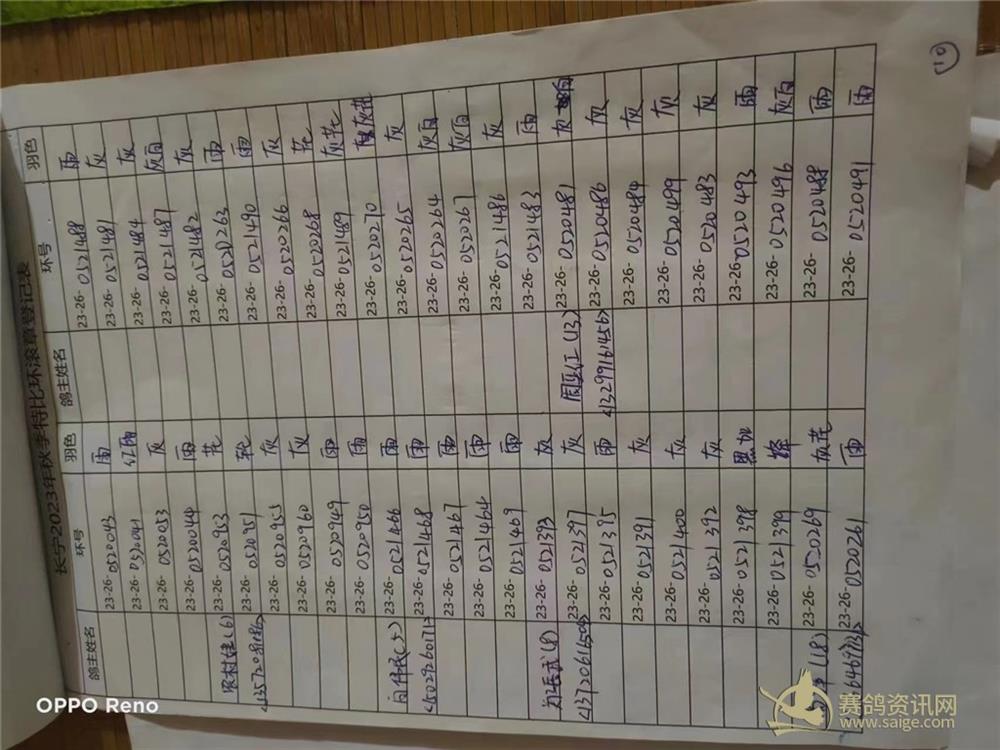 长宁2023年秋季特比环滚章登记表
鸽主姓名 环号 羽色 鸽主姓名 环号 羽色
23-26-0520043 雨 23-26-0521488 雨
23-26-052004 红雨 23-26-0521481 灰
23-26-0520053 灰 23-26-0521484 灰
23-26-0520044 雨 23-26-0521487 灰白
(6) 23-26-0520953 花 23-26-0521482 灰
23-26-0520951 轮 23-26-0520263 雨
23-26-0520955 灰 23-26-0521490 雨
23-26-0520960 灰 23-26-0520266 灰
23-26-0520949 雨 23-26-0520268 花
23-26-0520950 雨 23-26-0521489 灰花
23-26-0521466 雨 23-26-0520270 灰花
23-26-0521468 雨 23-26-0520265 灰
23-26-0521467 雨 23-26-0520264 灰白
23-26-0521464 雨 23-26-0520267 灰白
23-26-0521469 雨 23-26-0521486 灰
(8) 23-26-0521393 灰 23-26-0521483 雨
23-26-0521397 灰 (13) 23-26-0520481 灰
23-26-0521395 雨 13299161456 23-26-0520486 灰
23-26-0521391 灰 23-26-0520484 灰
23-26-0521400 灰 23-26-0520499 灰
23-26-0521392 灰 23-26-0520483 灰
23-26-0521398 黑 23-26-0520493 雨
23-26-0521399 绛 23-26-0520496 灰白
(18) 23-26-0520269 灰花 23-26-0520488 雨
23-26-0520261 雨 23-26-0520491 雨
(10)
OPPO Reno
赛鸽资讯网
www.saige.com